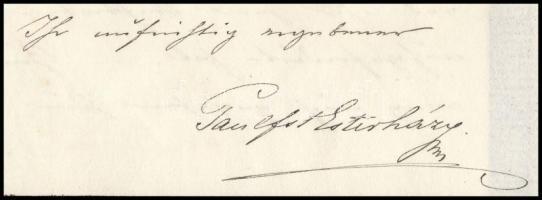 Ihr aufrichtig ergebener
Paul Fst Esterházy